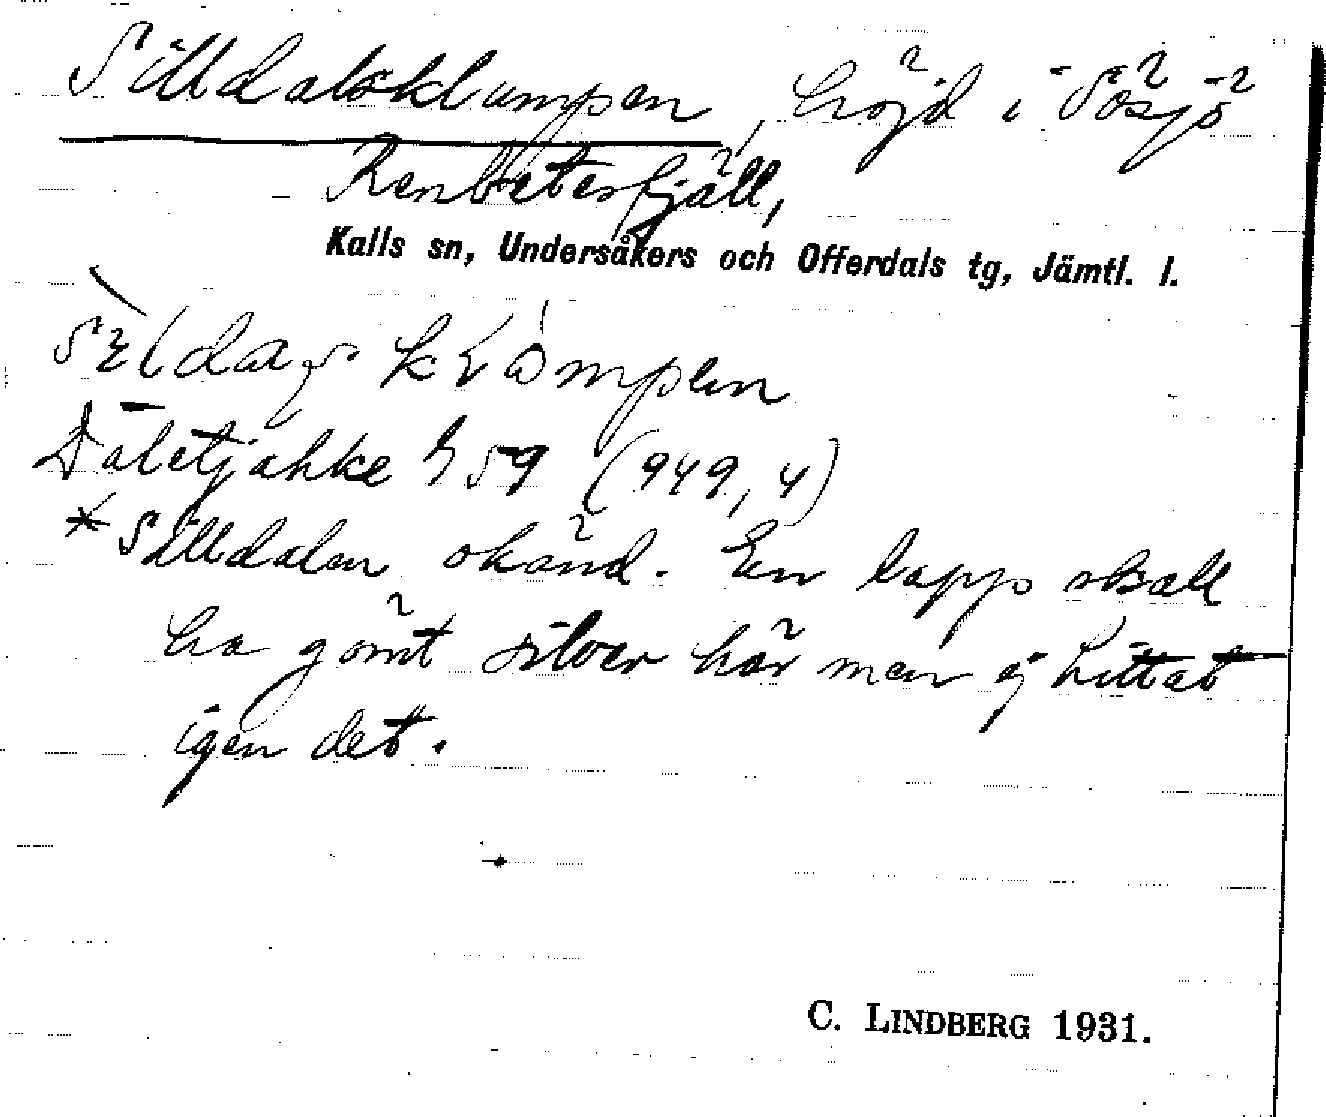 Silldalsklumpen, höjd i Sösjö
Renbetesfjäll,
Kalls sn, Undersåkers och Offerdals tg, Jämtl. l.
Daletjahke 59 (949,4)
* Silldalen okänd. En lapp skall
ha gömt silver här men ej hittat
igen det.
C. LINDBERG 1931.